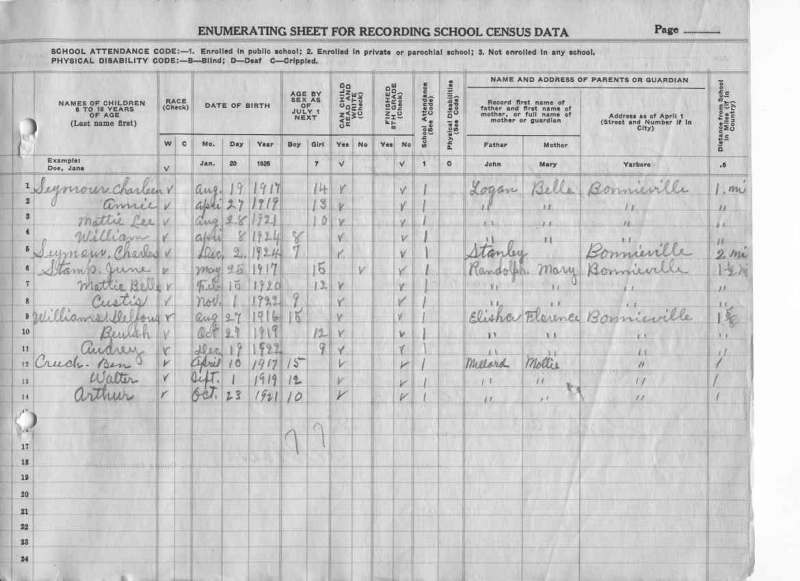 ENUMERATING SHEET FOR RECORDING SCHOOL CENSUS DATA Page
SCHOOL ATTENDANCE CODE:—1. Enrolled in public school; 2. Enrolled in private or parochial school; 3. Not enrolled in any school.
PHYSICAL DISABILITY CODE:—B—Blind; D—Deaf C—Crippled.
NAMES OF CHILDREN 6 TO 18 YEARS OF AGE (Last name first)
RACE (Check)
DATE OF BIRTH
AGE BY SEX AS OF JULY 1 NEXT
CAN CHILD READ AND WRITE (Check)
FINISHED 8TH GRADE (Check)
School Attendance (See Code)
Physical Disabilities (See Code)
NAME AND ADDRESS OF PARENTS OR GUARDIAN
Record first name of father and first name of mother, or full name of mother or guardian
Address as of April 1 (Street and Number if in City)
Distance from School in Miles (if in Country)
W C Mo. Day Year Boy Girl Yes No Yes No Father Mother
Example: Doe, Jane √ Jan. 20 1926 7 √ √ 1 0 John Mary Yarboro .5
1 Seymour Charleen √ Aug. 19 1917 14 √ √ 1 Logan Belle Bonnieville 1. mi
2 Annie √ April 27 1919 13 √ √ 1 " " " "
3 Mattie Lee √ Aug 28 1921 10 √ √ 1 " " " "
4 William √ April 8 1924 8 √ √ 1 " " " "
5 Seymour, Charles √ Dec. 2. 1924 7 √ √ 1 Stanley Bonnieville 2 mi
6 Stamp, June √ May 25 1917 15 √ √ 1 Randolph Mary Bonnieville 1½
7 Mattie Belle √ Feb 15 1920 12 √ √ 1 " " " "
8 Custis √ Nov. 1 1922 9 √ √ 1 " " " "
9 Williams √ Aug 27 1916 15 √ √ 1 Elisha Florence Bonnieville
10 Beulah √ Oct 29 1919 12 √ √ 1 " " " "
11 Audrey √ Dec 19 1922 9 √ √ 1 " " " "
12 Ben √ April 10 1917 15 √ √ 1 Millard Mottie " 1
13 Walter √ Sept. 1 1919 12 √ √ 1 " " " 1
14 Arthur √ Oct. 23 1921 10 √ √ 1 " " " 1
7 7
17
18
19
20
21
22
23
24